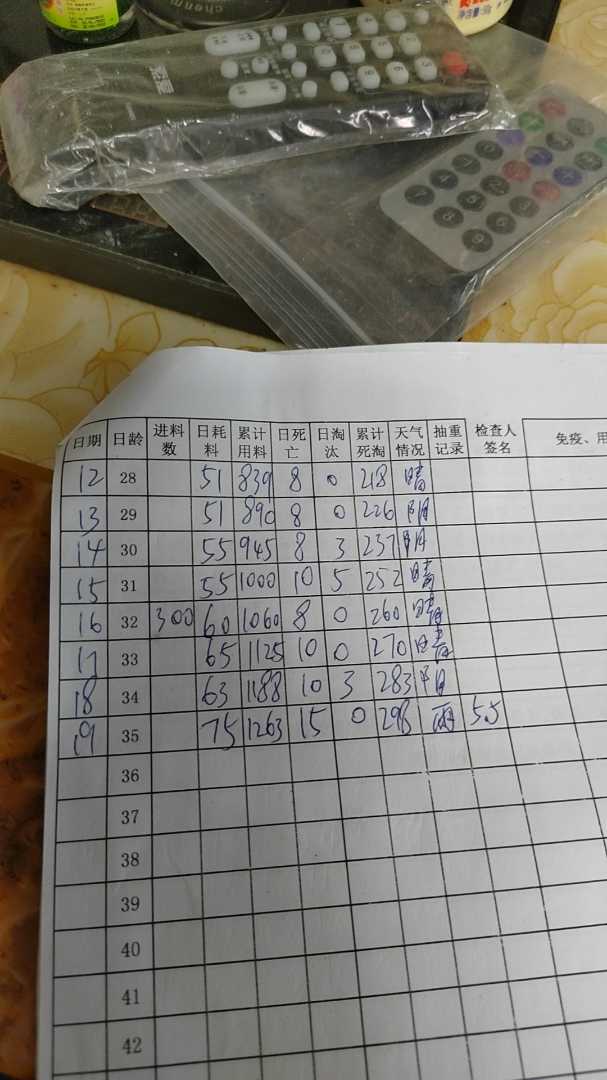 索爱
日期 日龄 进料数 日耗料 累计用料 日死亡 日淘汰 累计死淘 天气情况 抽重记录 检查人签名 免疫、用
12 28 51 839 8 0 218 晴
13 29 51 890 8 0 226 阴
14 30 55 945 8 3 237 阴
15 31 55 1000 10 5 252 晴
16 32 300 60 1060 8 0 260 晴
17 33 65 1125 10 0 270 晴
18 34 63 1188 10 3 283 阴
19 35 75 1263 15 0 298 雨 5.5
36
37
38
39
40
41
42